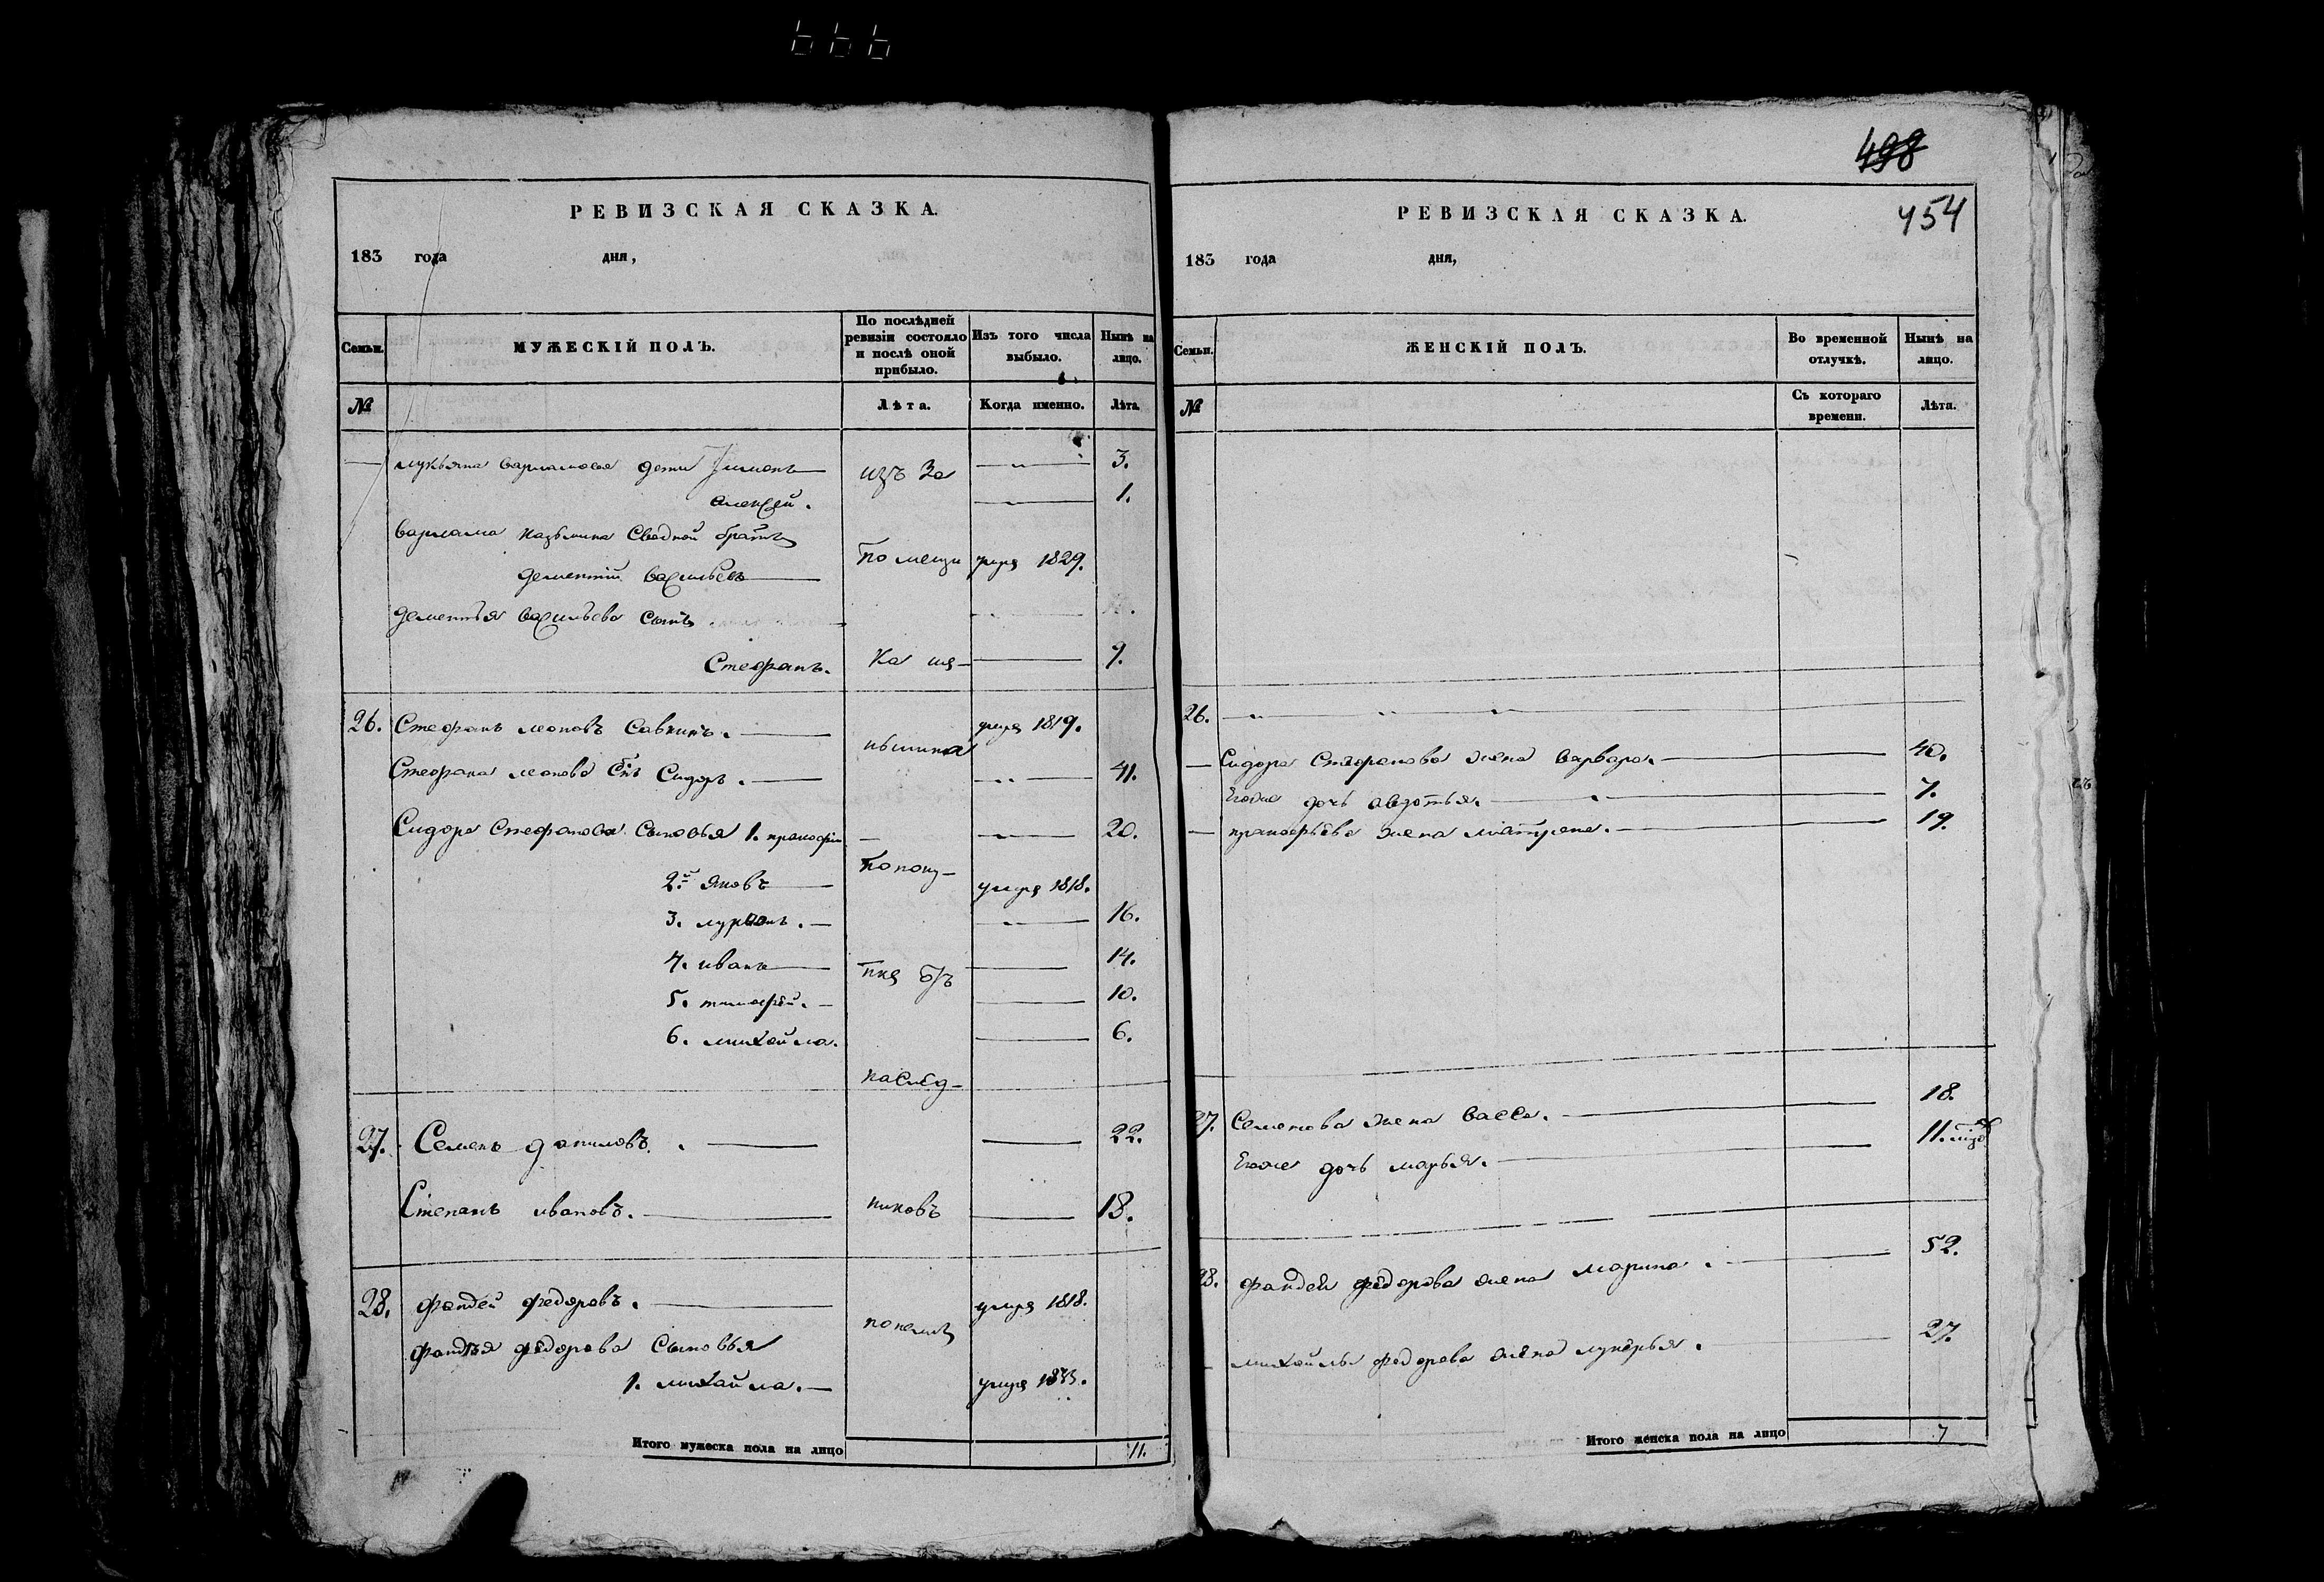 498
454
РЕВИЗСКАЯ СКАЗКА.
183 года дня,
Семьи. МУЖЕСКІЙ ПОЛЪ. По послѣдней ревизіи состояло и послѣ оной прибыло. Изъ того числа выбыло. Нынѣ на лицо.
№ Лѣта. Когда именно. Лѣта.
лукьяна варламова дети 3.
алексей. 1.
изъ за
варлама козьмина сводной братъ
дементій васильевъ помещи умре 1829.
дементья васильева сынъ
Стефанъ. 9.
26. Стефанъ леоновъ Савкинъ. умре 1819.
Стефана леонова сынъ Сидоръ. 41.
Сидора Стефанова сыновья 1. 20.
по поку
2й яковъ умре 1818.
3. 16.
4. иванъ 14.
5. тимофей. 10.
6. михайла. 6.
наслед
27. Семенъ даниловъ. 22.
Степанъ ивановъ. никовъ 18.
28. фандей федоровъ. умре 1818.
фандѣя федорова сыновья
1. михайла. умре
Итого мужеска пола на лицо 11.
РЕВИЗСКАЯ СКАЗКА.
183 года дня,
Семьи. ЖЕНСКІЙ ПОЛЪ. Во временной отлучкѣ. Нынѣ на лицо.
№ Съ котораго времени. Лѣта.
26.
Сидора Стефанова жена варвара. 40.
Егоже дочь авдотья. 7.
прокофьева жена матрена. 19.
27. Семенова жена васса. 18.
Егоже дочь марья. 11.
28. фандея федорова жена марина. 52.
михайлы федорова жена лукерья. 27.
Итого женска пола на лицо 7